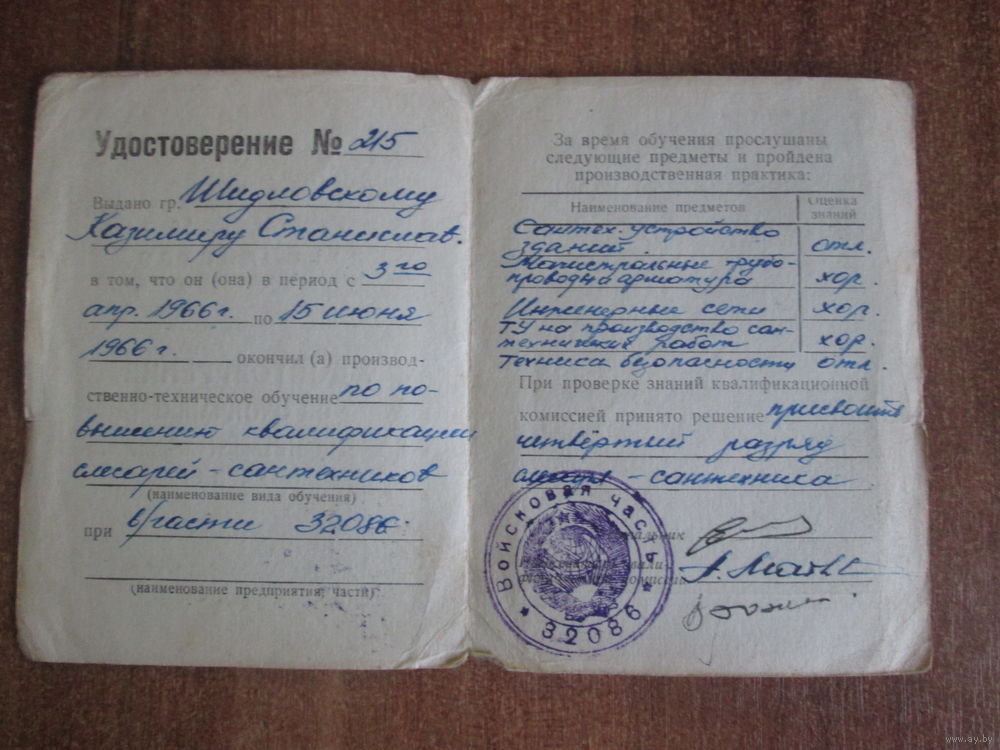 Удостоверение № 215
Выдано гр. Шидловскому
Казимиру Станислав.
в том, что он (она) в период с 3го
апр. 1966 г. по 15 июня
1966 г. окончил (а) производ-
ственно-техническое обучение по по-
вышению квалификации
слесарей-сантехников
(наименование вида обучения)
при в/части 32086.
(наименование предприятия, части)
За время обучения прослушаны
следующие предметы и пройдена
производственная практика:
Наименование предметов Оценка знаний
Сантех. устройство
зданий. отл.
Магистральные трубо-
проводы и арматура хор.
Инженерные сети хор.
ТУ на производство сан-
технических работ хор.
Техника безопасности отл.
При проверке знаний квалификационной
комиссией принято решение присвоить
четвёртый разряд
слесаря-сантехника
Войсковая часть
* 32086 *
www.ay.by